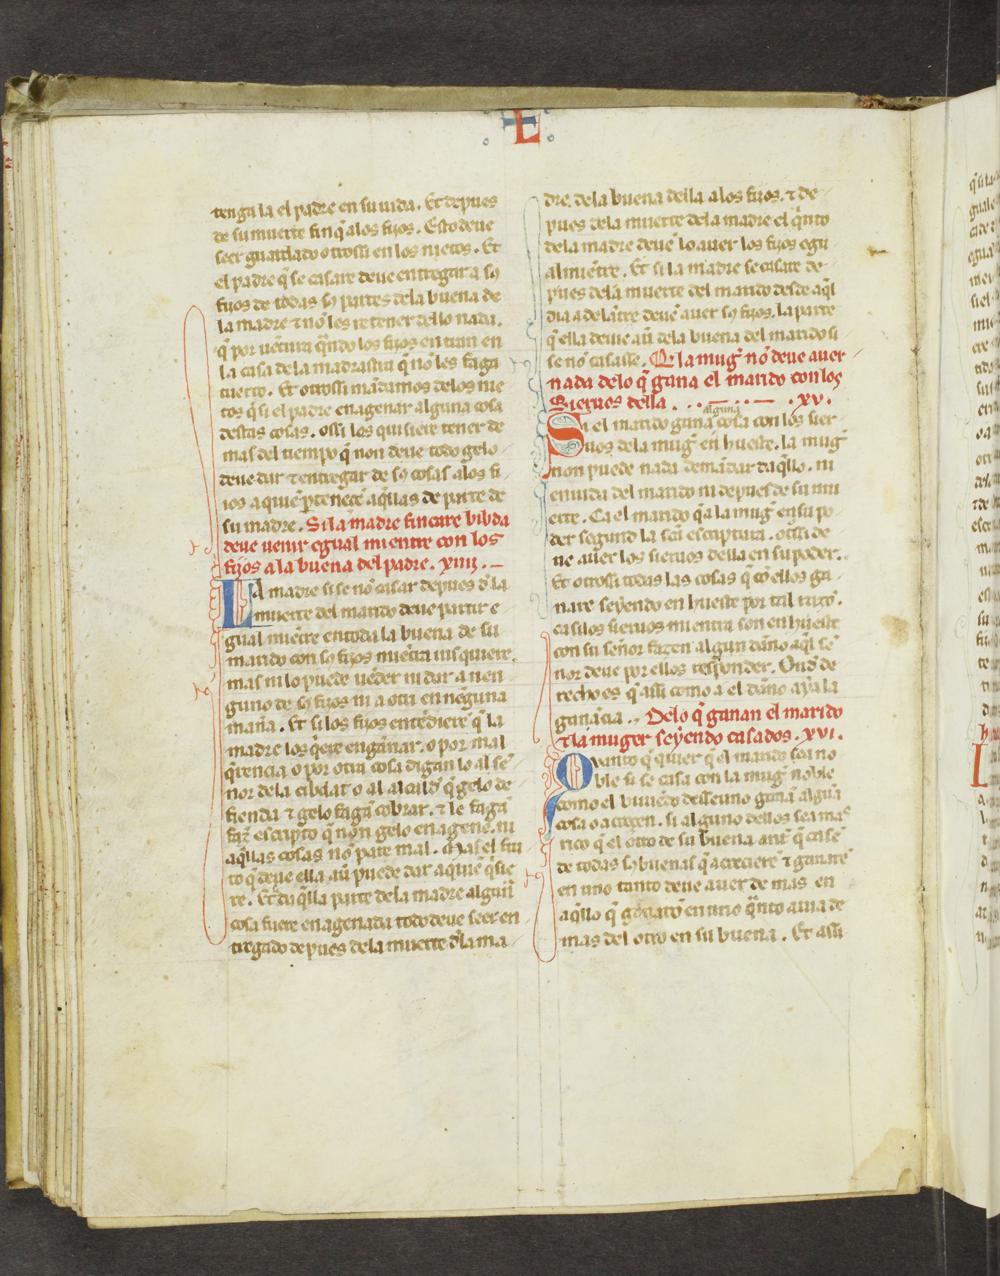 L
tenga la el padre en su uida. Et depues
de su muerte finq̃ alos fijos. Esto deue
seer guardado otrossi en los nietos. Et
el padre q̃ se casare deue entregar a sꝯ
fijos de todas sꝯ partes dela buena de
la madre ⁊ nõ les retener dello nada.
q̃ por uẽtura q̃ndo los fijos entran en
la casa de la madrastra q̃ nõ les faga
tuerto. Et otrossi mãdamos delos nie
tos q̃ si el padre enagenar alguna cosa
destas cosas. o ssi las quisiere tener de
mas del tiempo q̃ non deue todo gelo
deue dar ⁊ entregar de sꝯ cosas alos fi
ios a quiẽ ꝑtenecẽ aq̃llas de parte de
su madre. Si la madre fincare bibda
deue uenir egual mientre con los
fijos a la buena del padre. xiiii.
LA madre si se nõ casar depues d̃ la
muerte del marido deue partir e
gual miẽtre en toda la buena de su
marido con sꝯ fijos miẽtra uisquiere.
mas ni lo puede uẽder ni dar a nen
guno de sꝯ fijos ni a otri en nẽguna
maña. Et si los fijos entẽdierẽ q̃ la
madre los q̃ere engãnar. o por mal
q̃rencia o por otra cosa digan lo al se
nor dela cibdat o al alcald̃ q̃ gelo de
fienda ⁊ gelo fagã cobrar. ⁊ le fagã
faz̃ escripto q̃ non gelo enagene. ni
aq̃llas cosas nõ pare mal. Mas el fru
to q̃ deue ella aũ puede dar a quiẽ q̃sie
re. Et da q̃lla parte dela madre algũa
cosa fuere enagenada todo deue seer en
tregado depues dela muerte d̃la ma
dre. dela buena della alos fijos. ⁊ de
pues dela muerte dela madre el q̃nto
dela madre deuẽ lo auer los fijos egu
al miẽtre. Et si la madre se casare de
pues dela muerte del marido desde aq̃l
dia adelãtre deuẽ auer sꝯ fijos la parte
q̃ ella deuie aũ dela buena del marido si
se nõ casasse. Q̃ la mug̃ nõ deue auer
nada delo q̃ gana el marido con los
sieruos della . . . . xv.
alguna
Si el marido gana cosa con los sier
uos dela mug̃ en hueste. la mug̃
non puede nada demãdar daq̃llo. ni
en uida del marido ni depues de su mu
erte. Ca el marido q̃ a la mug̃ en su po
der segund la scã escriptura. ossi de
ue auer los sieruos della en su poder.
Et otrossi todas las cosas q̃ cõ ellos ga
nare seyendo en hueste por tal razõ.
ca si los sieruos mientra son en hueste
con su señor fazen algun dãno aq̃l se
nor deue por ellos responder. Ond̃ de
recho es q̃ assi como a el dãno aya la
ganãcia .. Delo q̃ ganan el marido
⁊ la muger seyendo casados. xvi.
Quanto q̃ quier q̃ el marido sea no
ble si se casa con la mug̃ noble
como el biuiẽdo dessuuno ganã algũa
cosa o acrecen. si alguno dellos sea mas
rico q̃ el otro de su buena
de todas sꝯ buenas q̃ acrecierẽ ⁊ ganarẽ
en uno tanto deue auer de mas en
aq̃llo q̃ gãnarõ en uno q̃nto auia de
mas del otro en su buena. Et assi